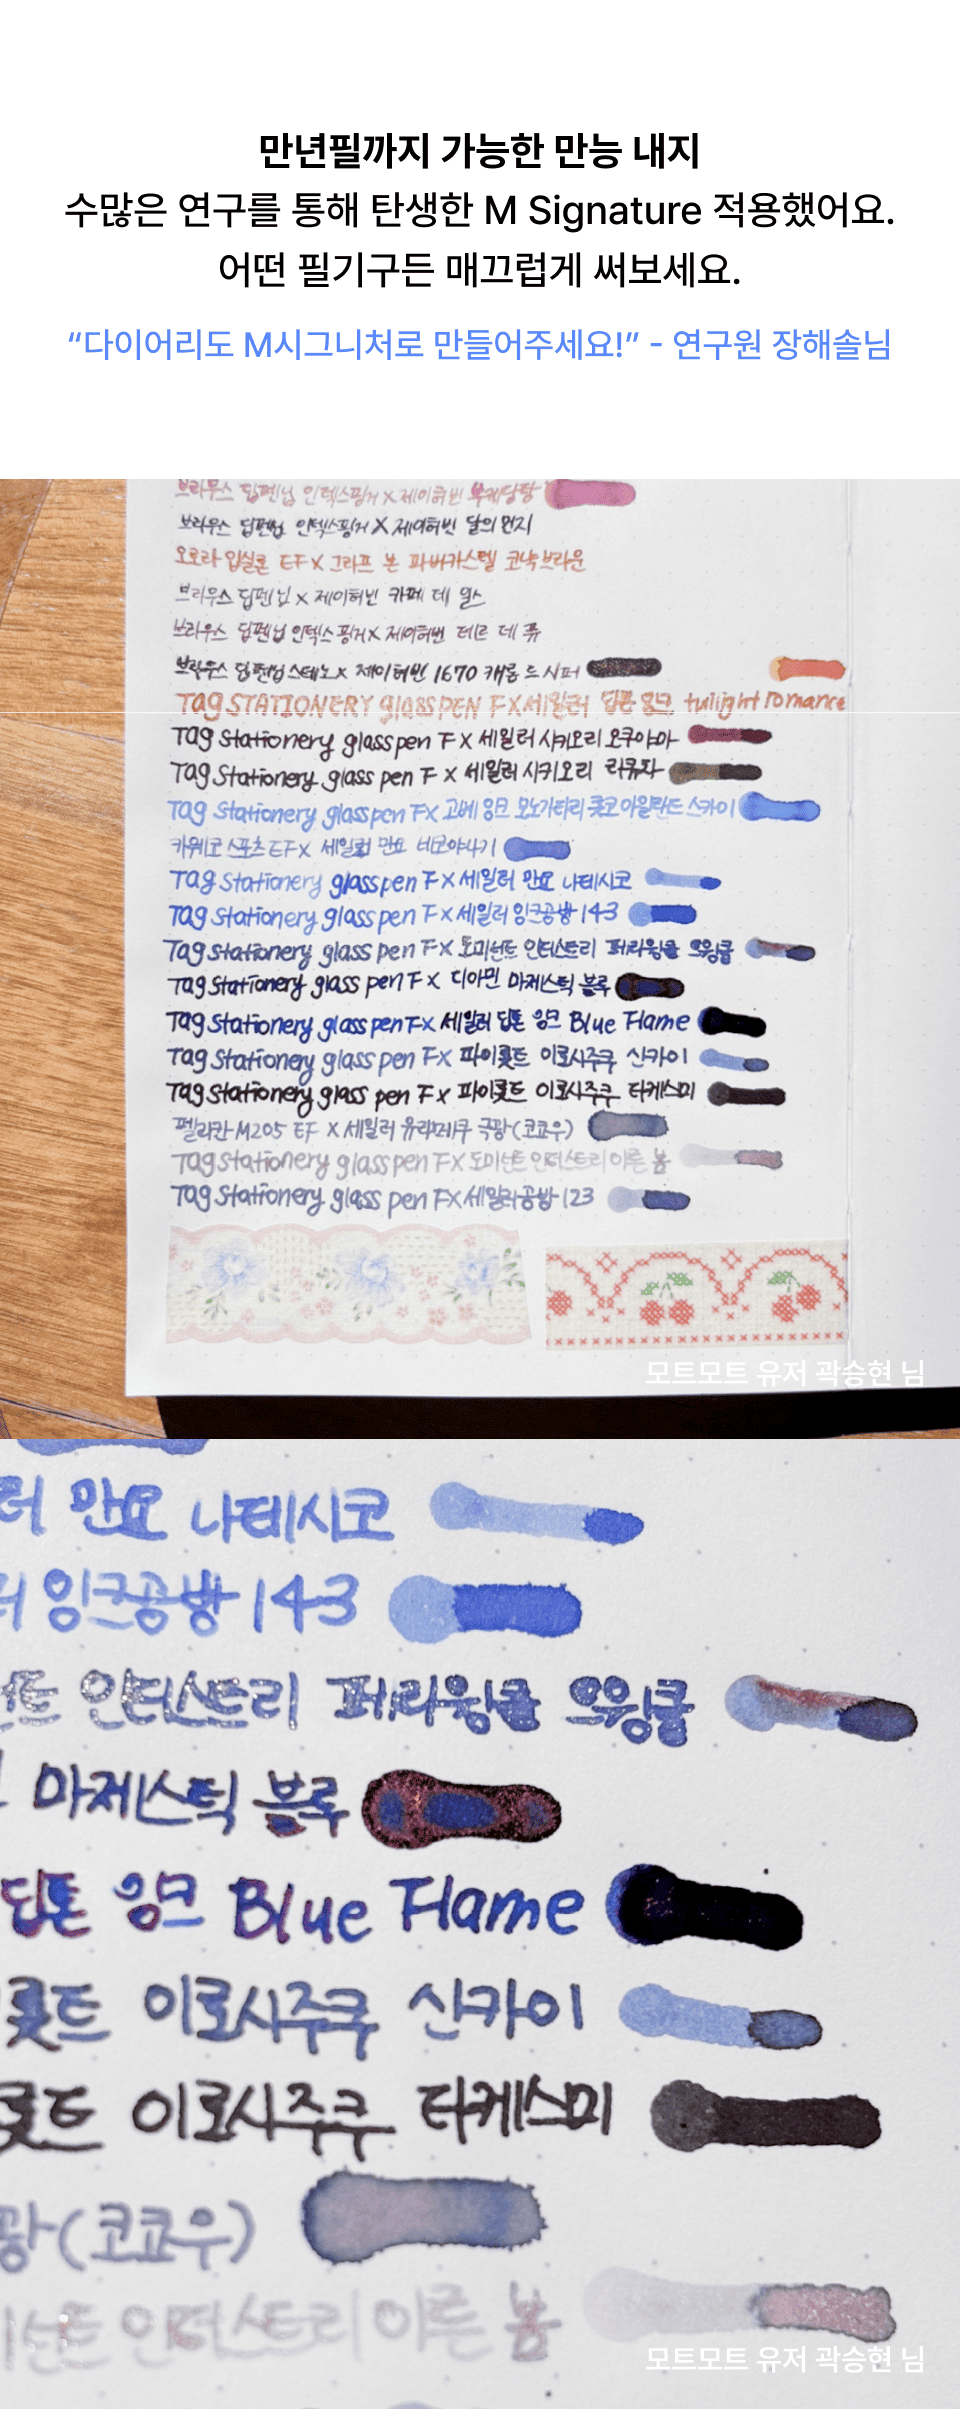 만년필까지 가능한 만능 내지
수많은 연구를 통해 탄생한 M Signature 적용했어요.
어떤 필기구든 매끄럽게 써보세요.
“다이어리도 M시그니처로 만들어주세요!” - 연구원 장해솔님
브라우스 딥펜닙 인덱스핑거 X 제이허빈 부케당탕
브라우스 딥펜닙 인덱스핑거 X 제이허빈 달의 먼지
오로라 입실론 EF X 그라프 본 파버카스텔 코냑브라운
브라우스 딥펜닙 X 제이허빈 카페 데 일스
브라우스 딥펜닙 인덱스핑거 X 제이허빈 떼르 데 퓨
브라우스 딥펜닙 스테노 X 제이허빈 1670 캐롭 드 시퍼
Tag STATIONERY glass PEN F X 세일러 딥톤 잉크 twilight romance
Tag Stationery glass pen F X 세일러 시키오리 오쿠야마
Tag Stationery glass pen F X 세일러 시키오리 리큐차
Tag Stationery glass pen F X 고베 잉크 모노가타리 롯코 아일랜드 스카이
카웨코 스포츠 EF X 세일러 만요 비코야나기
Tag Stationery glass pen F X 세일러 만요 나데시코
Tag Stationery glass pen F X 세일러 잉크공방 143
Tag Stationery glass pen F X 도미넌트 인더스트리 페라윙클 으윙클
Tag Stationery glass pen F X 디아민 마제스틱 블루
Tag Stationery glass pen F X 세일러 딥톤 잉크 Blue Flame
Tag Stationery glass pen F X 파이롯트 이로시주쿠 산카이
Tag Stationery glass pen F X 파이롯트 이로시주쿠 타케스미
펠리칸 M205 EF X 세일러 유라메쿠 극광(코쿄우)
Tag Stationery glass pen F X 도미넌트 인더스트리 이른 봄
Tag Stationery glass pen F X 세일러공방 123
모트모트 유저 곽승현 님
러 만요 나데시코
러 잉크공방 143
넌트 인더스트리 페라윙클 으윙클
마제스틱 블루
딥톤 잉크 Blue Flame
롯트 이로시주쿠 산카이
롯트 이로시주쿠 타케스미
광(코쿄우)
미넌트 인더스트리 이른 봄
모트모트 유저 곽승현 님